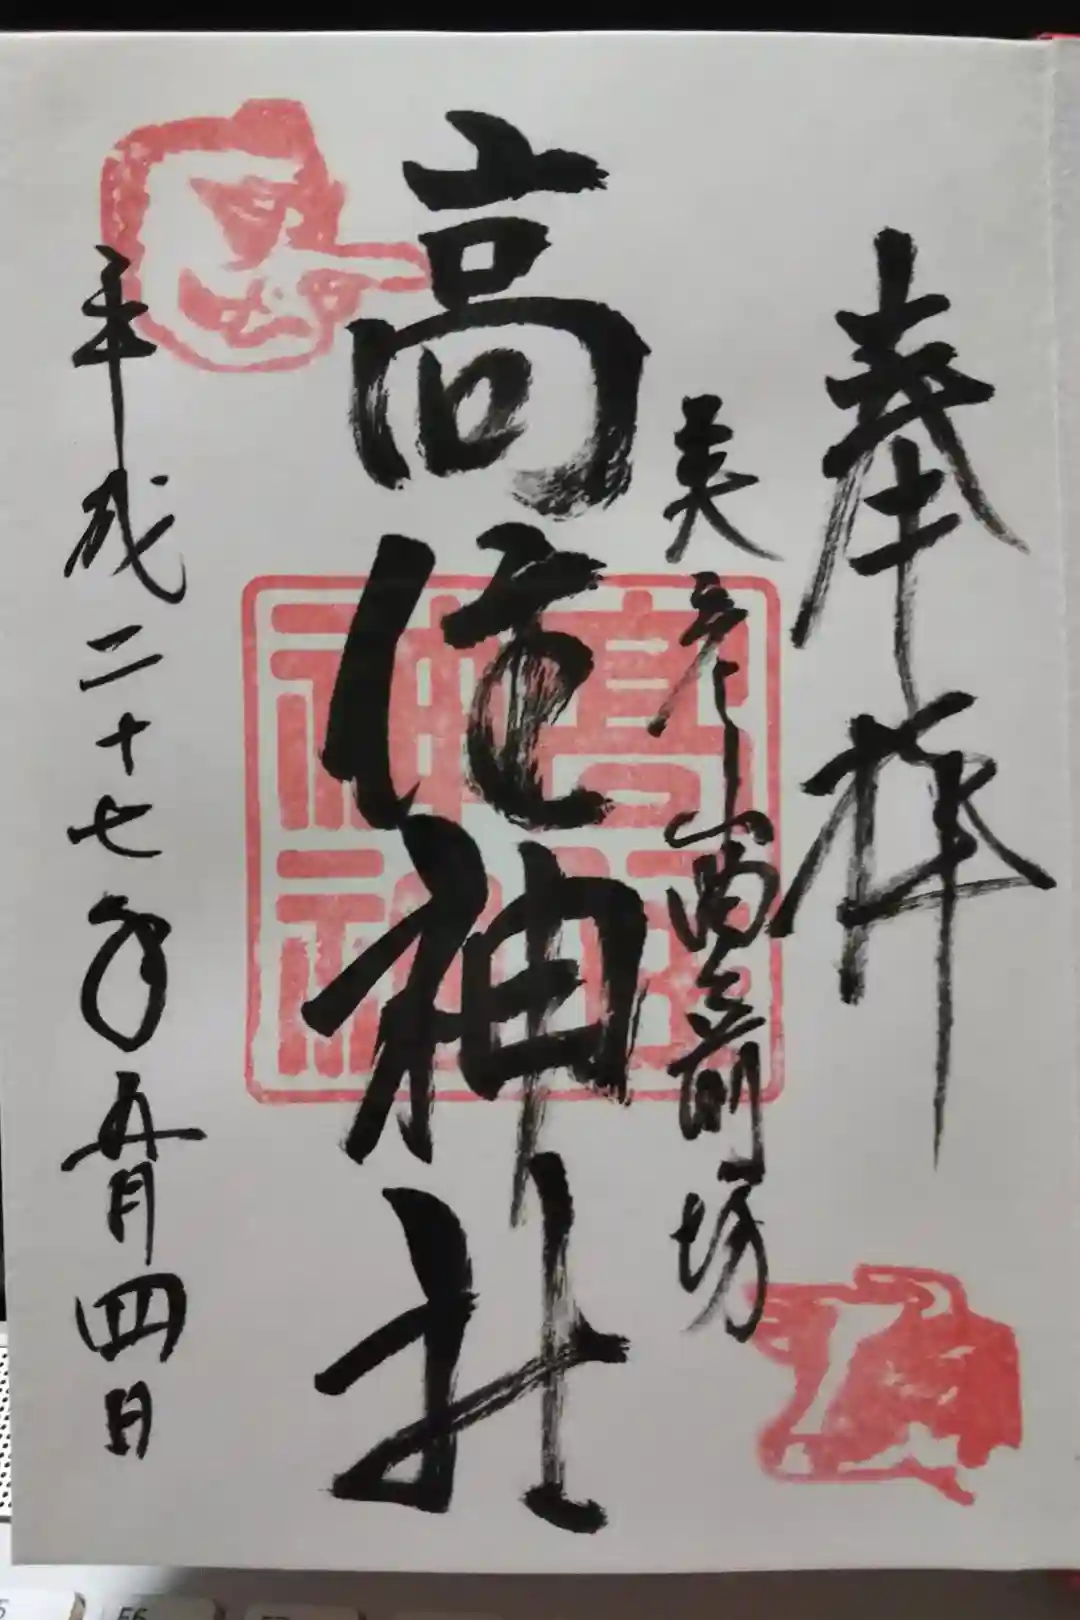 奉拝
英彦山豊前坊
高住神社
高住
神社
平成二十七年五月四日
F6